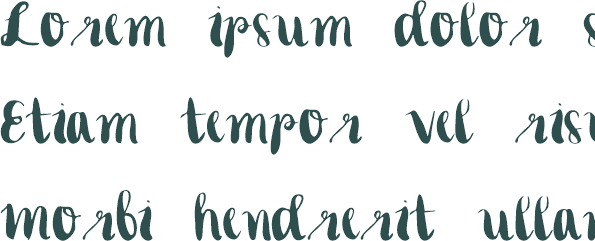 Lorem ipsum dolor s
Etiam tempor vel risu
morbi hendrerit ullam